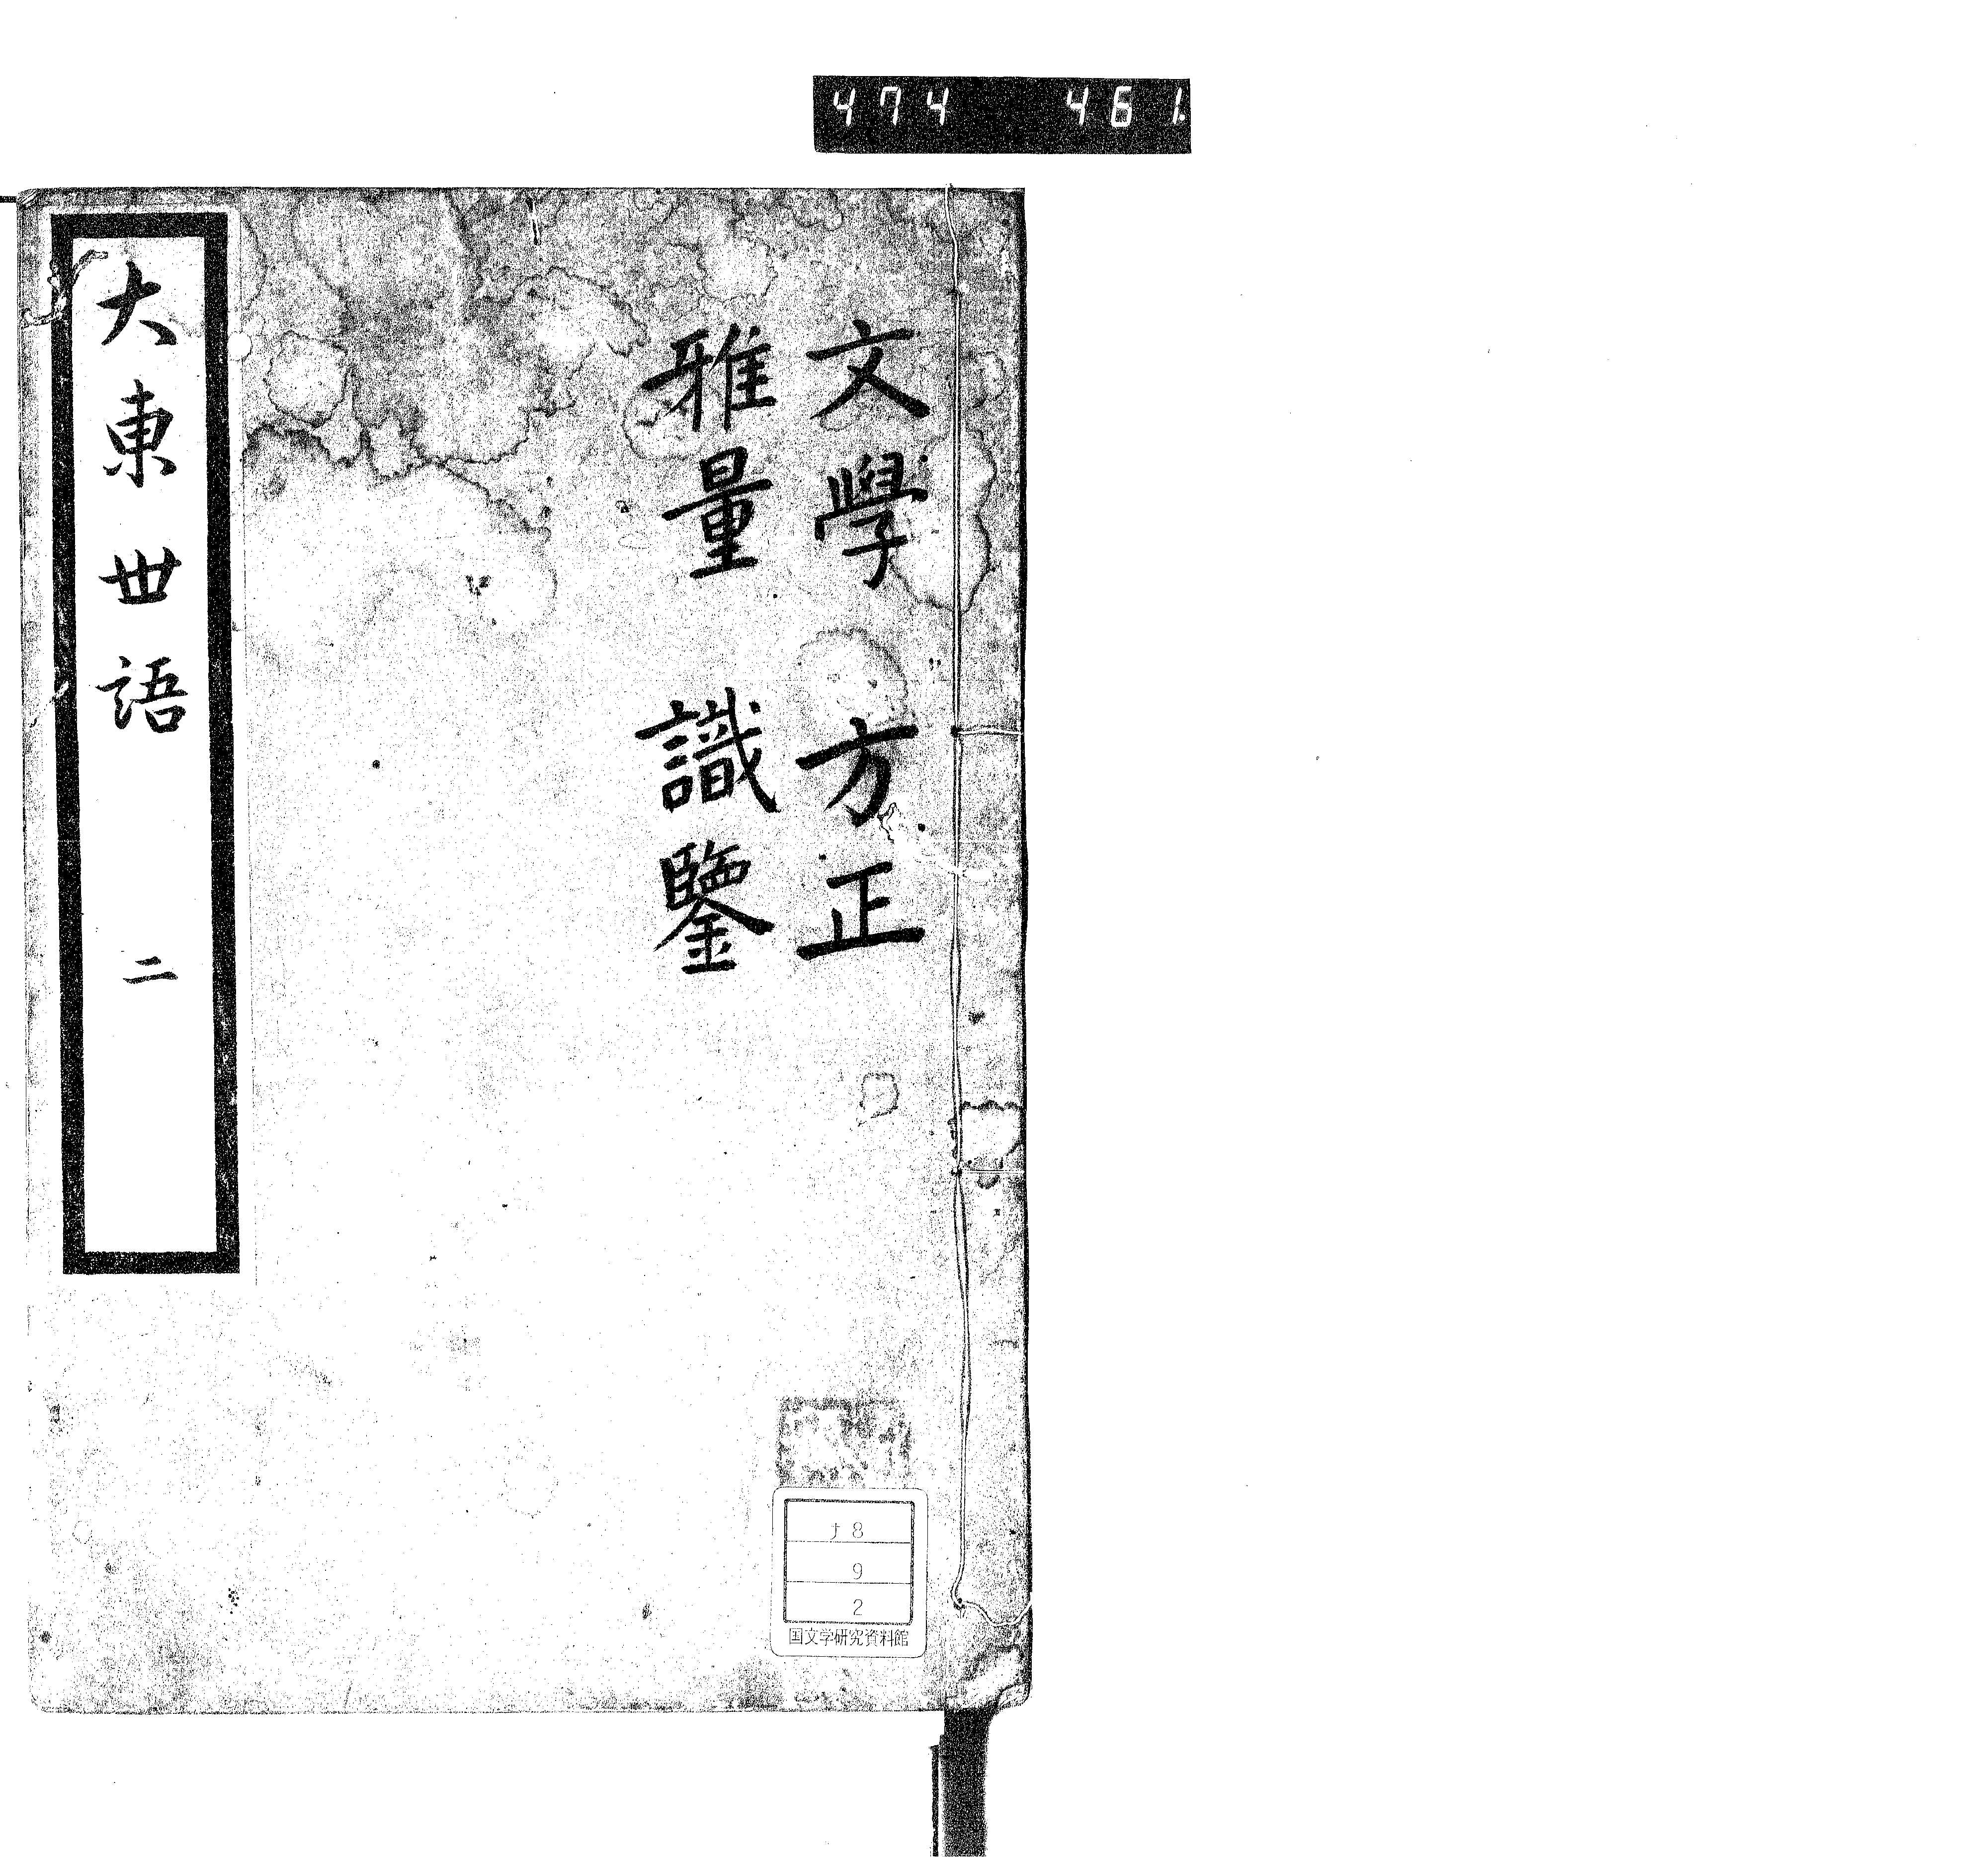 474 461
文學 方正
雅量 識鑒
大東世語 二
ナ8
9
2
国文学研究資料館